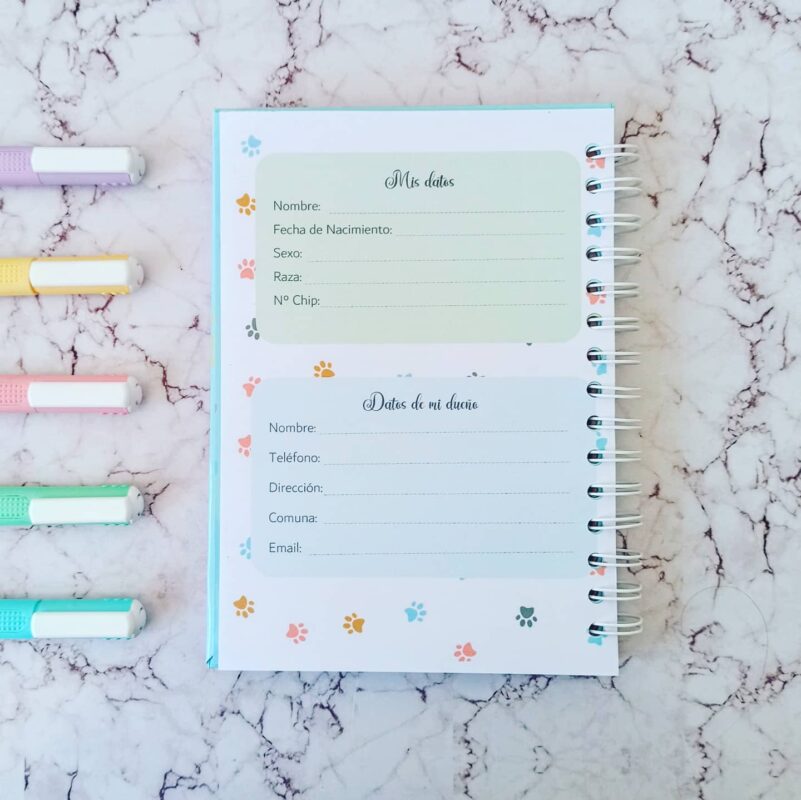 Mis datos
Nombre:
Fecha de Nacimiento:
Sexo:
Raza:
Nº Chip:
Datos de mi dueño
Nombre:
Teléfono:
Dirección:
Comuna:
Email: